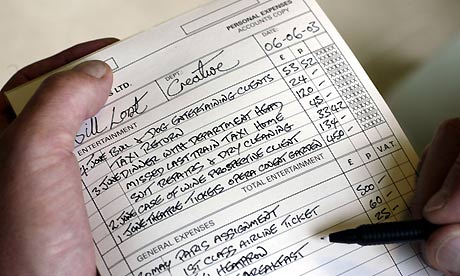 PERSONAL EXPENSES
ACCOUNTS COPY
LTD.
DATE: 06-06-03
Bill Loot
DEPT. Creative
ENTERTAINMENT £ P V.A.T.
4 JUNE BULL & DOG ENTERTAINING CLIENTS 53.52
TAXI RETURN 24 -
3 JUNE DINNER WITH DEPARTMENT HEAD 120
MISSED LAST TRAIN TAXI HOME 45 -
SUIT REPAIRS & DRY CLEANING 33.42
2 JUNE CASE OF WINE PROSPECTIVE CLIENT 134 -
1 JUNE THEATRE TICKETS OPERA COVENT GARDEN 450 -
TOTAL ENTERTAINMENT
GENERAL EXPENSES £ P V.A.T.
PARIS ASSIGNMENT
1ST CLASS AIRLINE TICKET 500 -
HEATHROW 60 -
BREAKFAST 25 -